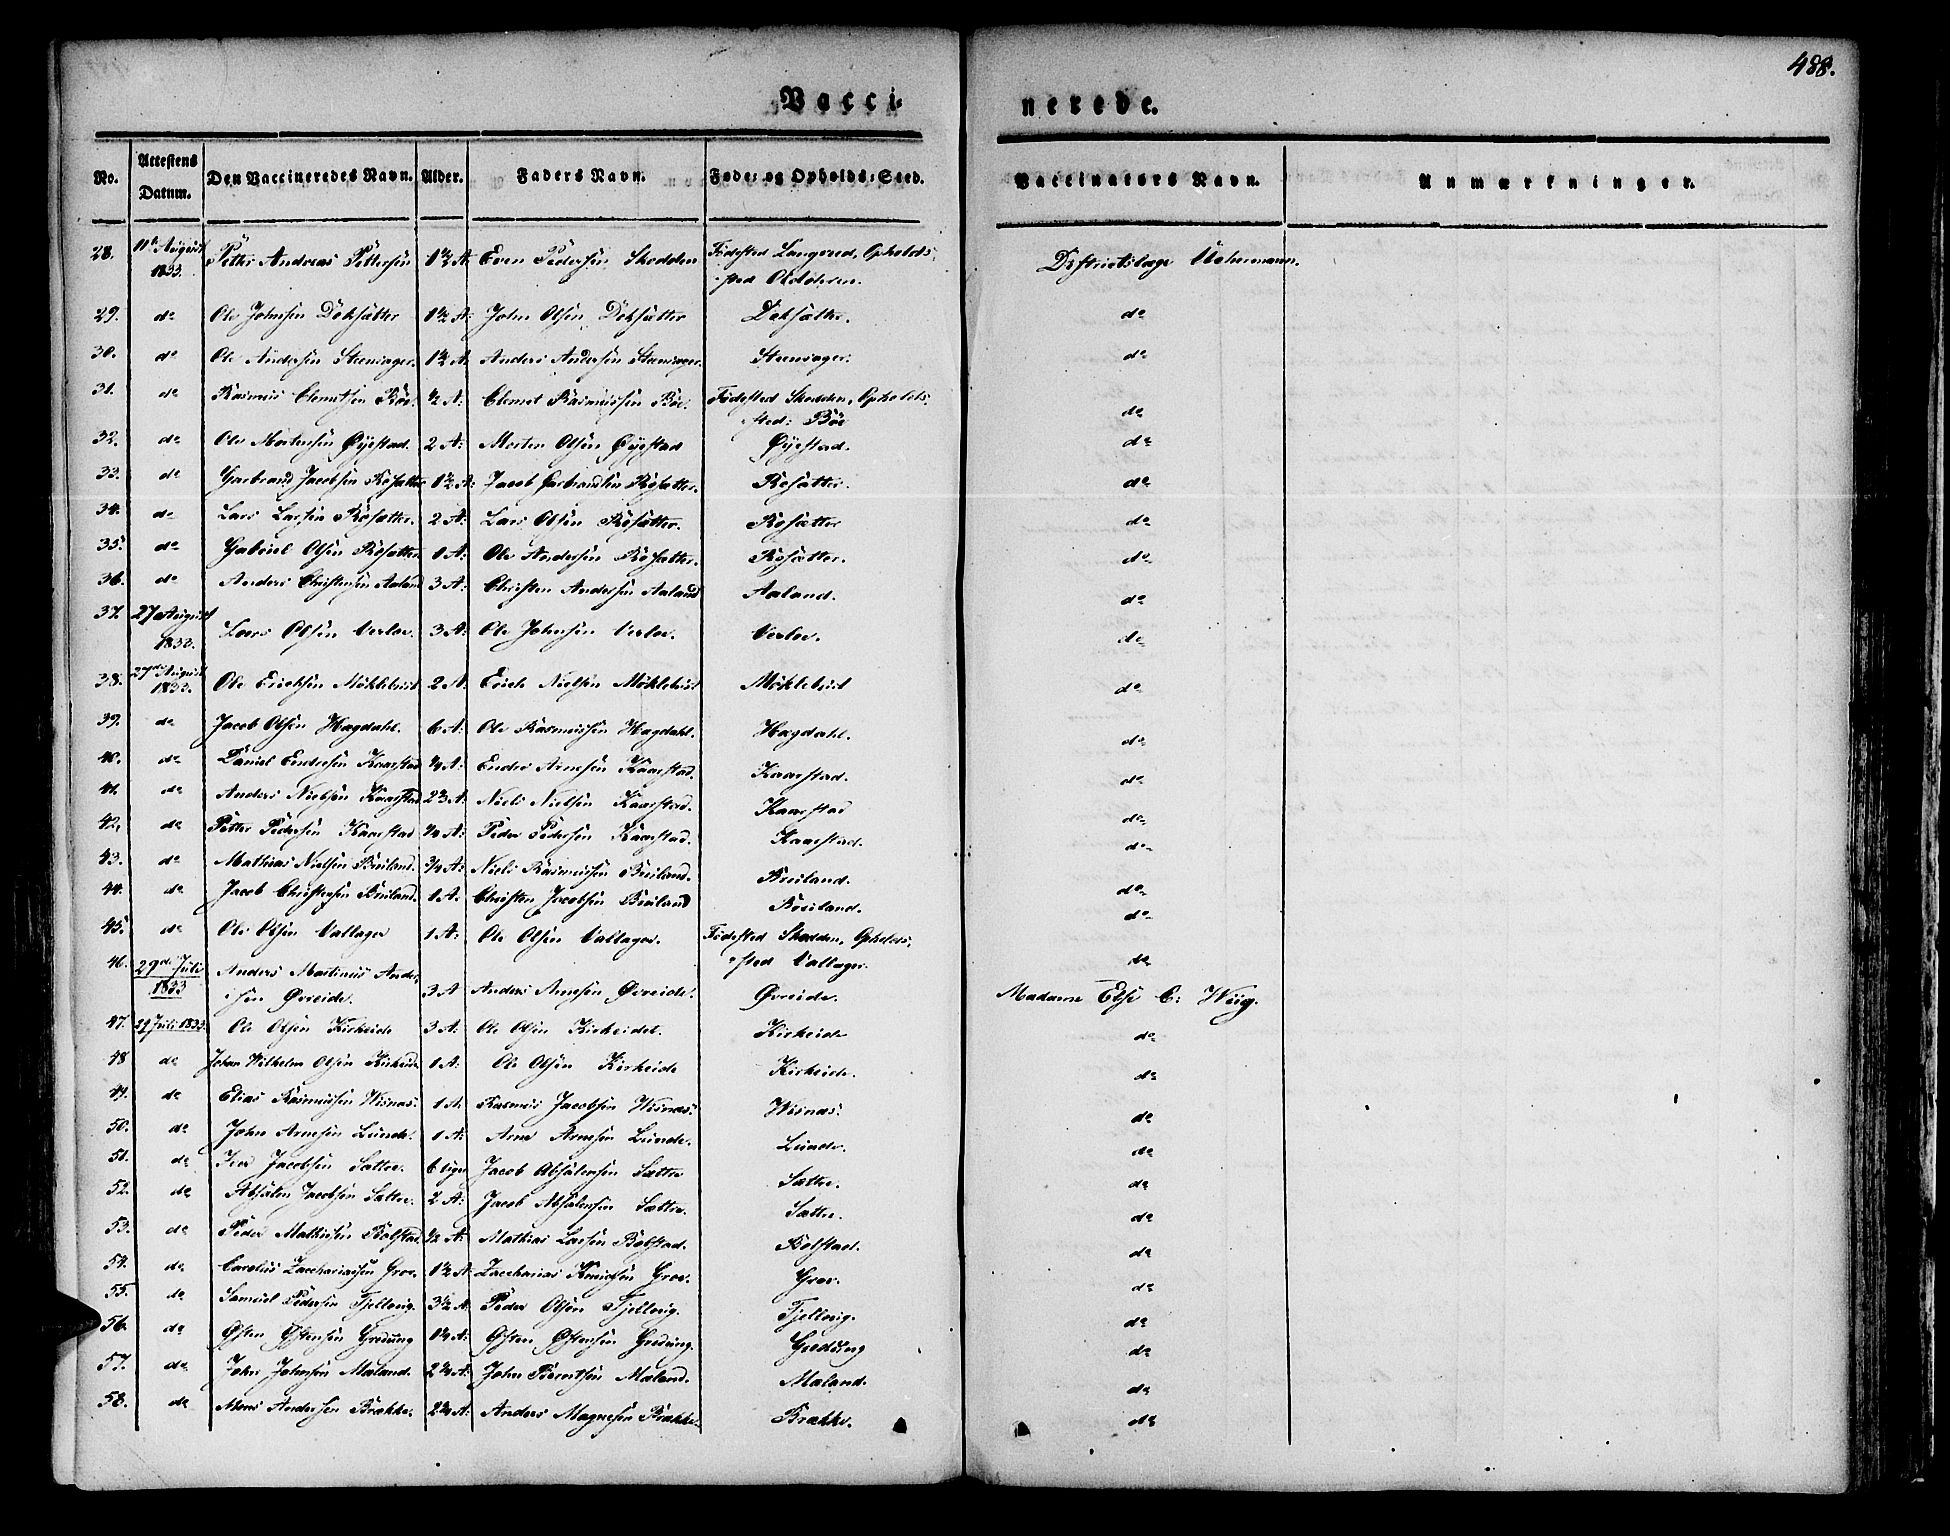 488.
Vacci-
nerede.
No. Attestens Datum. Den Vaccineredes Navn. Alder. Faders Navn. Føde- og Opholds-Sted. Vaccinateurs Navn. Anmærkninger.
28. 11te August 1833. Petter Andreas Pettersen 1½ A: Even Pedersen Skodden Födested Langered, Opholds- sted Districtslæge
29. do Ole Johnsen Döksætter 1½ A: John Olsen Döksætter Döksætter. do
30. do Ole Andersen Steensager. Anders Andersen Steensager. Steensager. do
31. do Rasmus Clemetsen Böe. ½ A: Clemet Rasmussen Böe. Födested Skodden, Opholds- sted: Böe do
32. do Ole Mortensen Öyestad. 2 A: Morten Olsen Öyestad Öyestad. do
33. do Garbrand Jacobsen Rösætter 1½ A: Jacob Garbrandsen Rösætter. Rosætter. do
34. do Lars Larsen Rösætter. 2 A: Lars Olsen Rösætter. Rosætter do
35. do Gabriel Olsen Rösætter 1 A: Ole Andersen Rösætter. Rosætter. do
36. do Anders Christensen Aaland 3 A: Christen Andersen Aaland Aaland. do
37. 27 August 1833. Lars Olsen Verloe. 3 A: Ole Johnsen Verloe. Verloe. do
38. 27de August 1833. Ole Ericksen Möklebust 2 A: Erich Nielsen Möklebust Möklebust do
39. do Jacob Olsen Hagdahl. 6 A: Ole Rasmussen Hagdahl. Hagdahl. do
40. do Daniel Endresen Kaarstad ¼ A: Endre Arnesen Kaarstad. Kaarstad. do
41. do Anders Nielsen Kaarstad Niels Nielsen Kaarstad. Kaarstad do
42. do Petter Pedersen Kaarstad ¼ A: Peder Pedersen Kaarstad. Kaarstad. do
43. do Mathias Nielsen Breiland. ¾ A: Niels Rasmussen Breiland. Breiland. do
44. do Jacob Christensen Breiland. 1 A: Christen Jacobsen Breiland Breiland. do
45. do Ole Olsen Vallager 1 A: Ole Olsen Vallager. Födested Skodden, Opholds- sted Vallager. do
46. 29de Juli 1833 Anders Martinus Ander- sen Øvreide. 3 A Anders Arnesen Øvreide. Øvreide. Madame Else C: Wiig.
47. 29 Juli 1833. Ole Olsen Kirkeide 3 A: Ole Olsen Kirkeidet. Kirkeide do
48 do Johan Wilhelm Olsen Kirkeide 1 A: Ole Olsen Kirkeide Kirkeide. do
49. do Elias Rasmussen Wisnæs. 1 A. Rasmus Jacobsen Wisnæs. Wisnæs. do
50. do John Arnesen Lunde. 1 A: Arne Arnesen Lunde. Lunde. do
51. do Iver Jacobsen Sætter. 6 Uger Jacob Absalonsen Sætter Sætter. do
52. do Absalon Jacobsen Sætter. 2 A: Jacob Absalonsen Sætter. Sætter. do
53. do Peder Mathiesen Bolstad. ½ A: Mathias Larsen Bolstad. Bolstad. do
54. do Carolus Zachariassen Grov. 1½ A Zacharias Knudsen Grov. Grov. do
55. do Samuel Pedersen Fjellvig. 3½ A: Peder Olsen Fjellvig. Fjellvig. do
56. do Østen Østensen Gredung 1¼ A: Østen Østensen Gredung. Gredung do
57. do John Johnsen Maland. 2¼ A: John Berntsen Maland. Maland. do
58. do Mons Andersen Brække. 2¼ A: Anders Magnesen Brække. Brække. do